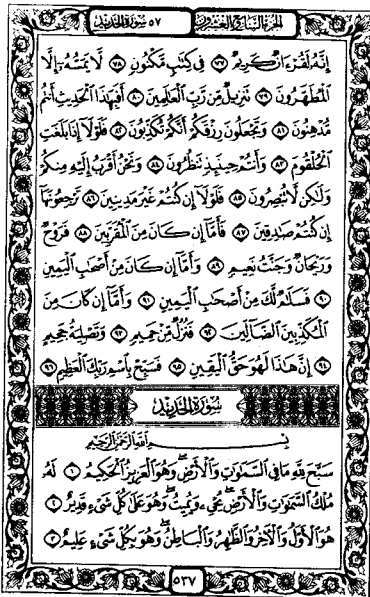 الجزء السابع والعشرون ٥٧ سورة الحديد
إِنَّهُۥ لَقُرْءَانٌ كَرِيمٌ ٧٧ فِى كِتَٰبٍ مَّكْنُونٍ ٧٨ لَّا يَمَسُّهُۥٓ إِلَّا
ٱلْمُطَهَّرُونَ ٧٩ تَنزِيلٌ مِّن رَّبِّ ٱلْعَٰلَمِينَ ٨٠ أَفَبِهَٰذَا ٱلْحَدِيثِ أَنتُم
مُّدْهِنُونَ ٨١ وَتَجْعَلُونَ رِزْقَكُمْ أَنَّكُمْ تُكَذِّبُونَ ٨٢ فَلَوْلَآ إِذَا بَلَغَتِ
ٱلْحُلْقُومَ ٨٣ وَأَنتُمْ حِينَئِذٍ تَنظُرُونَ ٨٤ وَنَحْنُ أَقْرَبُ إِلَيْهِ مِنكُمْ
وَلَٰكِن لَّا تُبْصِرُونَ ٨٥ فَلَوْلَآ إِن كُنتُمْ غَيْرَ مَدِينِينَ ٨٦ تَرْجِعُونَهَآ
إِن كُنتُمْ صَٰدِقِينَ ٨٧ فَأَمَّآ إِن كَانَ مِنَ ٱلْمُقَرَّبِينَ ٨٨ فَرَوْحٌ
وَرَيْحَانٌ وَجَنَّتُ نَعِيمٍ ٨٩ وَأَمَّآ إِن كَانَ مِنْ أَصْحَٰبِ ٱلْيَمِينِ
٩٠ فَسَلَٰمٌ لَّكَ مِنْ أَصْحَٰبِ ٱلْيَمِينِ ٩١ وَأَمَّآ إِن كَانَ مِنَ
ٱلْمُكَذِّبِينَ ٱلضَّآلِّينَ ٩٢ فَنُزُلٌ مِّنْ حَمِيمٍ ٩٣ وَتَصْلِيَةُ جَحِيمٍ
٩٤ إِنَّ هَٰذَا لَهُوَ حَقُّ ٱلْيَقِينِ ٩٥ فَسَبِّحْ بِٱسْمِ رَبِّكَ ٱلْعَظِيمِ ٩٦
سورة الحديد
بِسْمِ ٱللَّهِ ٱلرَّحْمَٰنِ ٱلرَّحِيمِ
سَبَّحَ لِلَّهِ مَا فِى ٱلسَّمَٰوَٰتِ وَٱلْأَرْضِ ۖ وَهُوَ ٱلْعَزِيزُ ٱلْحَكِيمُ ١ لَهُۥ
مُلْكُ ٱلسَّمَٰوَٰتِ وَٱلْأَرْضِ ۖ يُحْىِۦ وَيُمِيتُ ۖ وَهُوَ عَلَىٰ كُلِّ شَىْءٍ قَدِيرٌ ٢
هُوَ ٱلْأَوَّلُ وَٱلْءَاخِرُ وَٱلظَّٰهِرُ وَٱلْبَاطِنُ ۖ وَهُوَ بِكُلِّ شَىْءٍ عَلِيمٌ ٣
٥٣٧